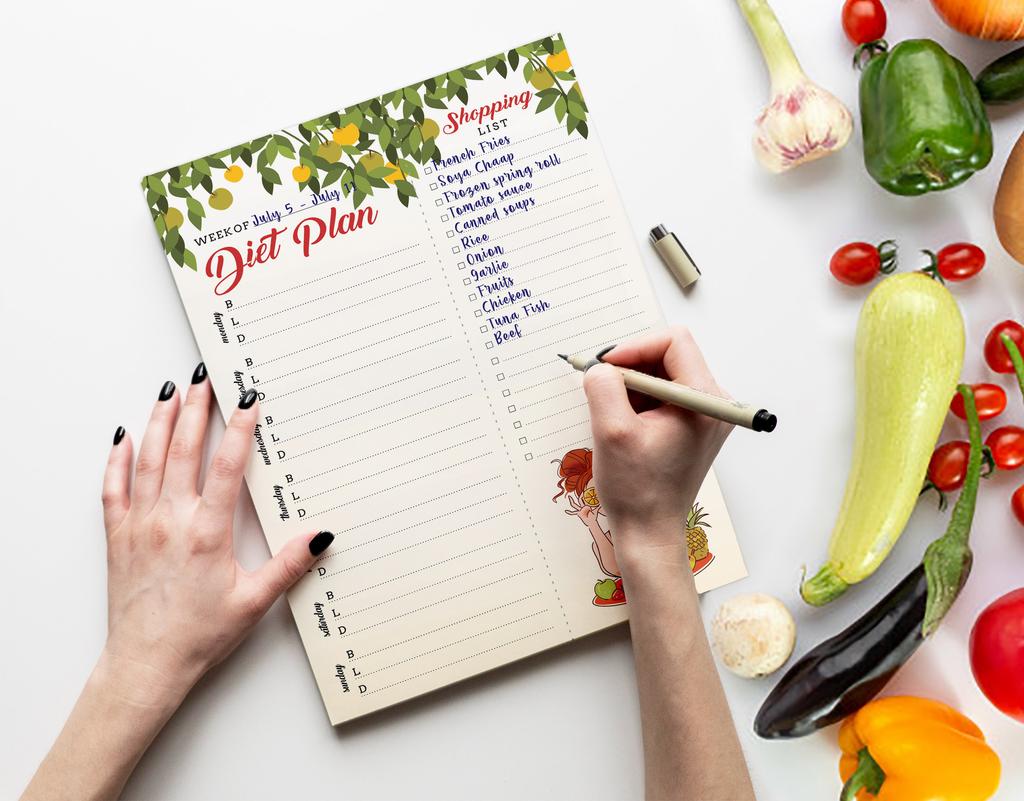 WEEK OF July 5 - July 11
Diet Plan
monday
B
L
D
B
L
D
wednesday
B
L
D
thursday
B
L
D
D
saturday
B
L
D
sunday
B
L
D
Shopping
LIST
French Fries
Soya Chaap
Frozen spring roll
Tomato sauce
Canned soups
Rice
Onion
Garlic
Fruits
Chicken
Tuna Fish
Beef